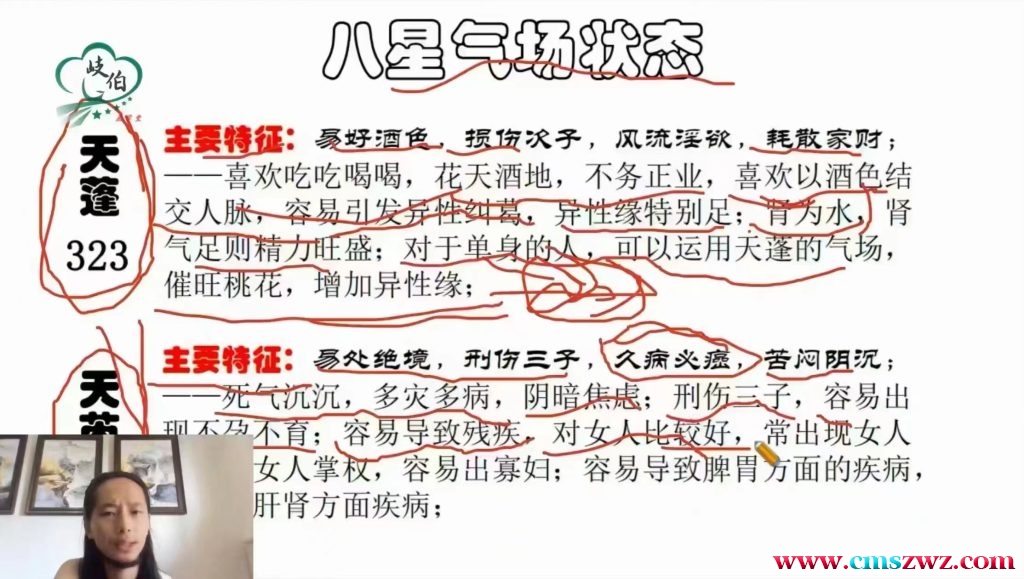 八星气场状态
岐伯
天蓬
323
主要特征：易好酒色，损伤次子，风流淫欲，耗散家财；
——喜欢吃吃喝喝，花天酒地，不务正业，喜欢以酒色结
交人脉，容易引发异性纠葛，异性缘特别足；肾为水，肾
气足则精力旺盛；对于单身的人，可以运用天蓬的气场，
催旺桃花，增加异性缘；
天芮
主要特征：易处绝境，刑伤三子，久病必癌，苦闷阴沉；
——死气沉沉，多灾多病，阴暗焦虑；刑伤三子，容易出
现不孕不育；容易导致残疾，对女人比较好，常出现女人
女人掌权，容易出寡妇；容易导致脾胃方面的疾病，
肝肾方面疾病；
www.cmszwz.com